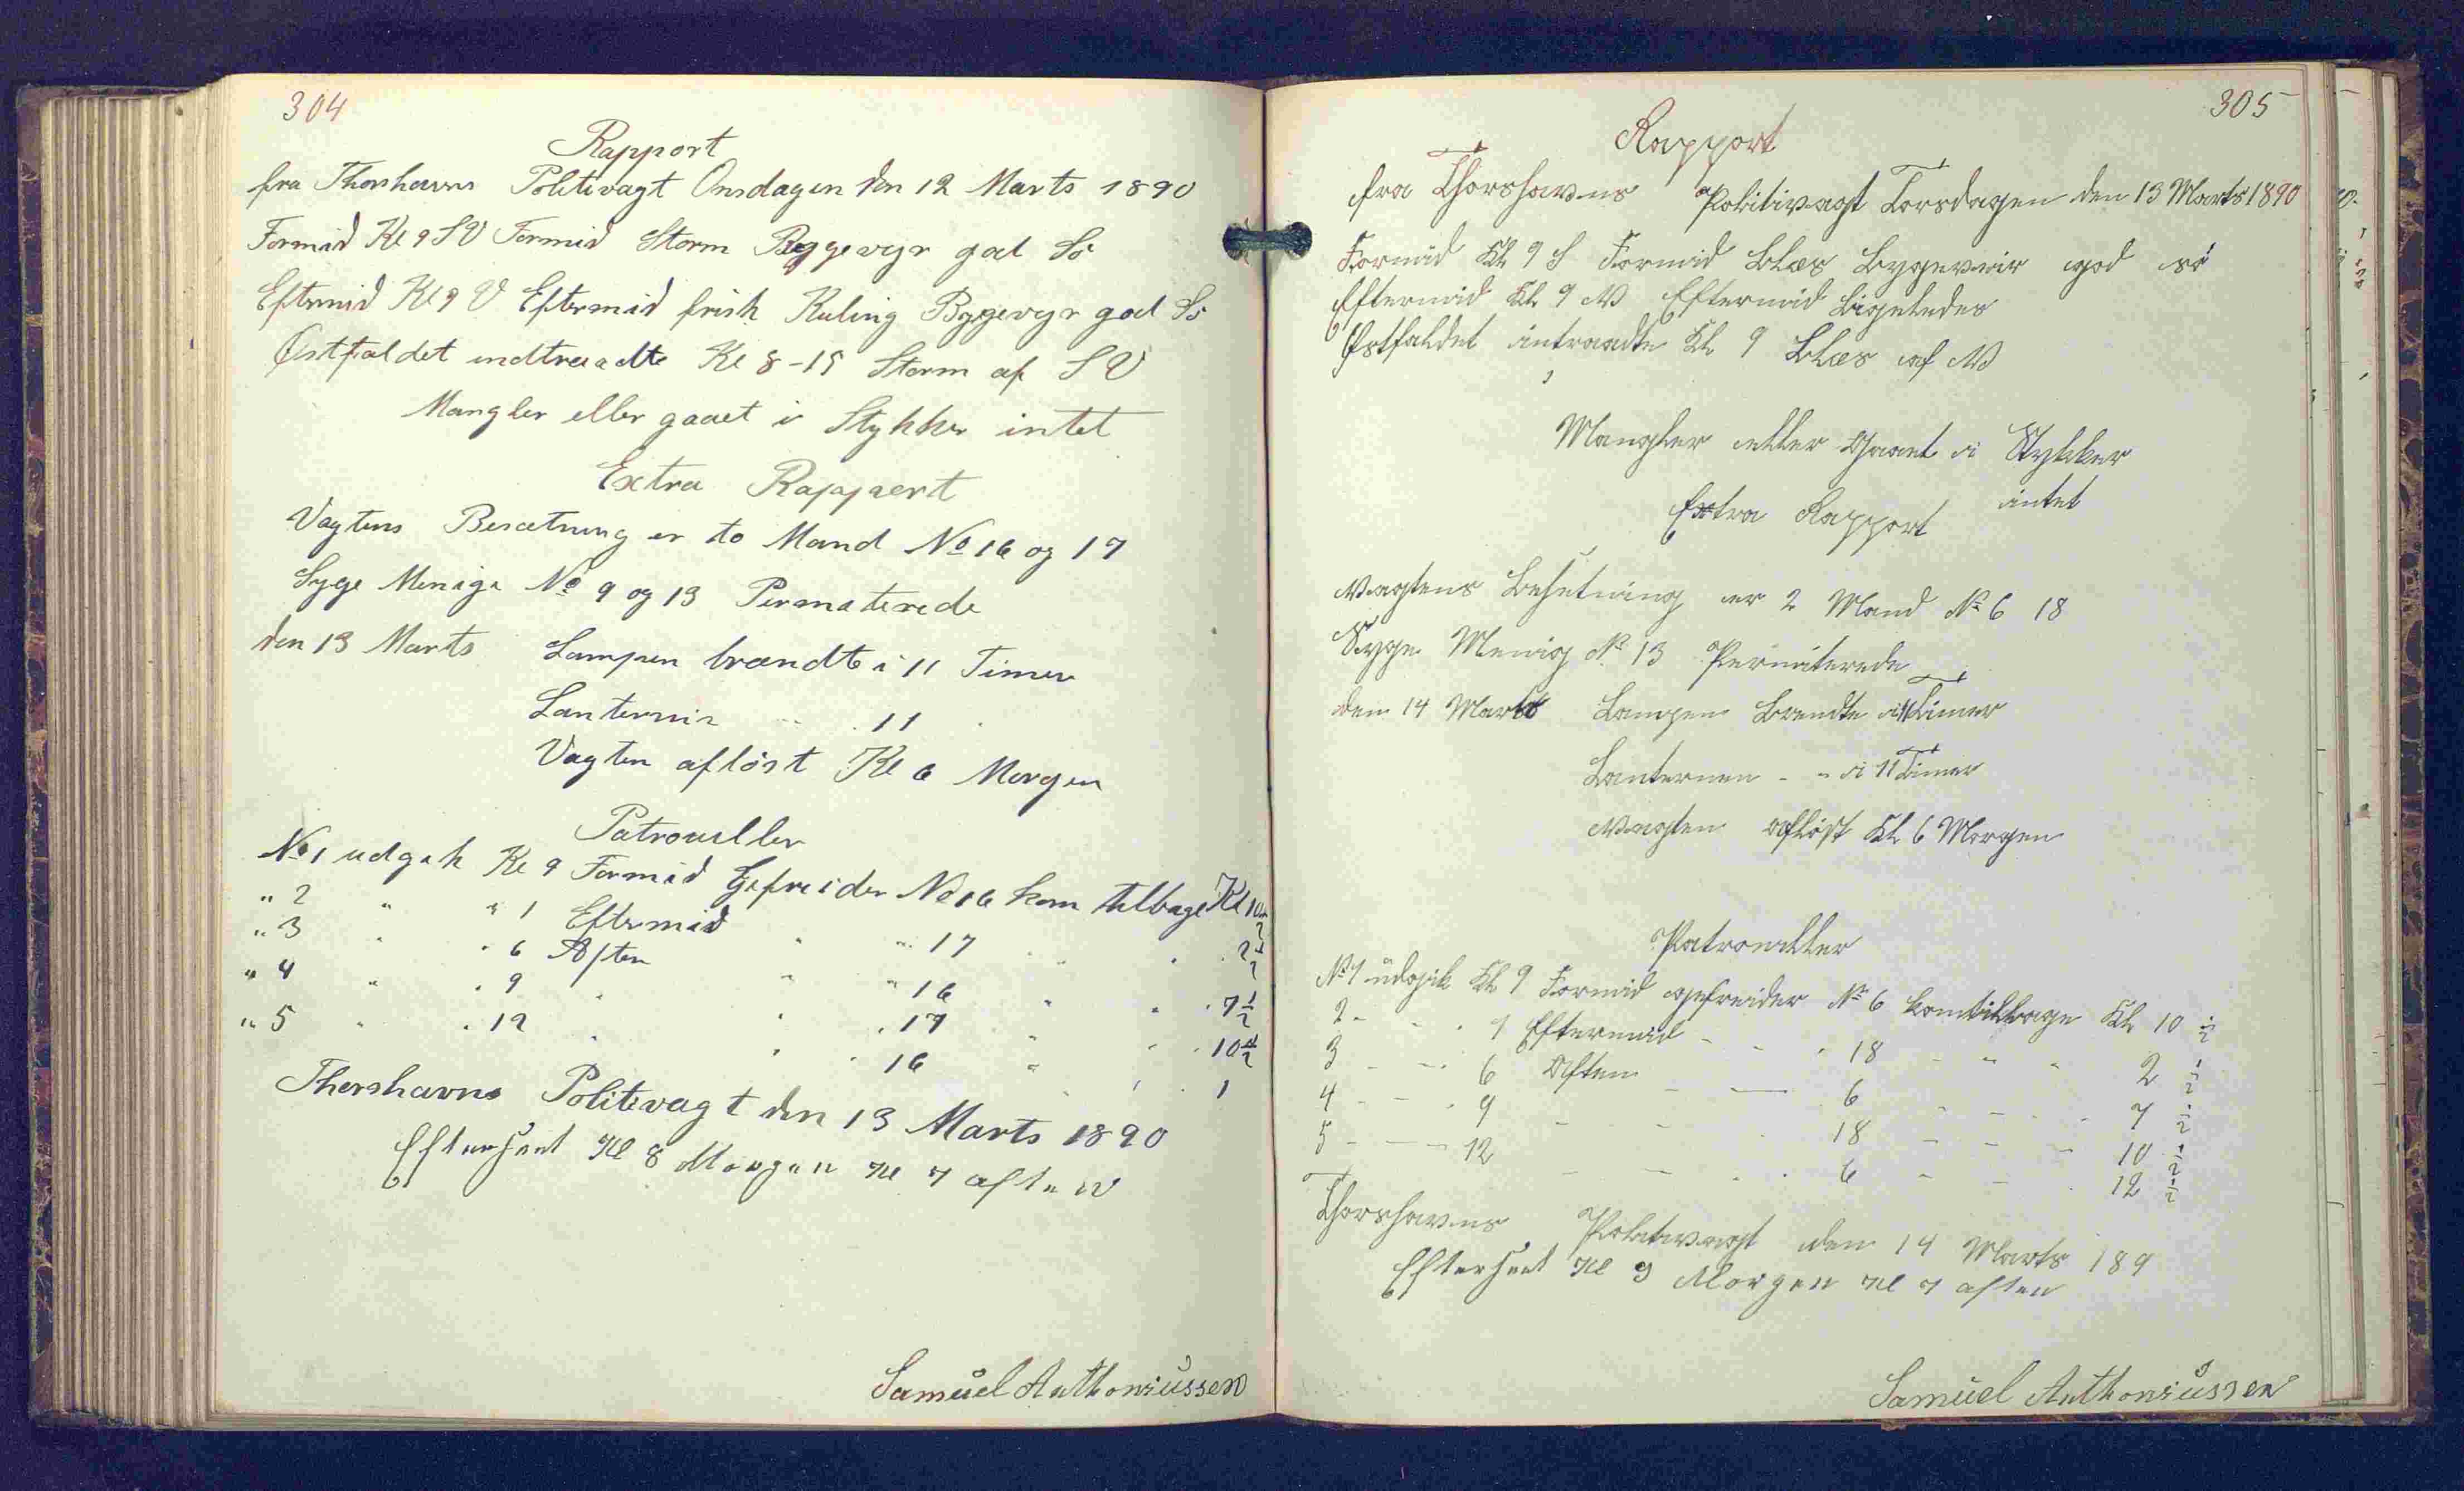 304
Rapport
fra Thorshavns Politivagt Onsdagen den 12 Marts 1890
Formid Kl 9 SV Formid Storm Byggevyr god Sö
Eftermid Kl 9 V Eftermid frisk Kuling Byggevyr god Sö
Östfaldet indtraadte Kl 8-15 Storm af SV
Mangler eller gaaet i Stykker intet
Extra Rappaert
Vagtens Besætning er to Mand No 16 og 17
Syge Menige No 9 og 13 Permaterede
den 13 Marts Lampen brændte i 11 Timer
Lanternin " 11
Vagten aflöst Kl 6 Morgen
Patrouller
No 1 udgik Kl 9 Formid Gefreider No 16 kom tilbage Kl 10 1/2
" 2 " " 1 Eftermid " " 17 " " 2 1/2
" 3 " " 6 Aften " " 16 " " 7 1/2
" 4 " " 9 " " 17 " " 10 1/2
" 5 " " 12 " " 16 " " 1
Thorshavns Politivagt den 13 Marts 1890
Efterseet Kl 8 Morgen Kl 7 aften
Samuel Anthoniussen
305
Rapport
fra Thorshavns Politivagt Torsdagen den 13 Marts 1890
Formid Kl 9 S Formid Blæs Bygeveir god sö
Eftermid Kl 9 N Eftermid Ligeledes
Östfaldet intraadte Kl 9 Blæs af N
Mangler eller Gaaet i Stykker
intet
Extra Rapport
Vagtens Besetning er 2 Mand No 6 18
Syge Menig No 13 Permiterede
den 14 Marts Lampen Brendte i 11 Timer
Lanternen - - i 11 Timer
Vagten aflöst Kl 6 Morgen
Patrouiller
No 1 udgik Kl 9 Formid gefreider No 6 kom tilbage Kl 10 1/2
2 - - - 1 Eftermid - - - 18 - - - 2 1/2
3 - - 6 Aften - - 6 - - - 7 1/2
4 - - - 9 - - - 18 - - - 10 1/2
5 - - - 12 - - - 6 - - - 12 1/2
Thorshavns Politivagt den 14 Marts 189
Efterseet Kl 9 Morgen Kl 7 aften
Samuel Anthoniussen